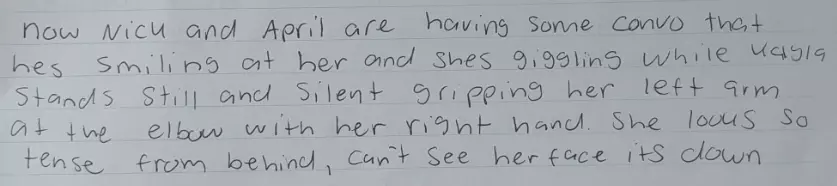 now Nicu and April are having some convo that
hes smiling at her and shes giggling while Kayla
stands still and silent gripping her left arm
at the elbow with her right hand. She looks so
tense from behind, can't see her face its down